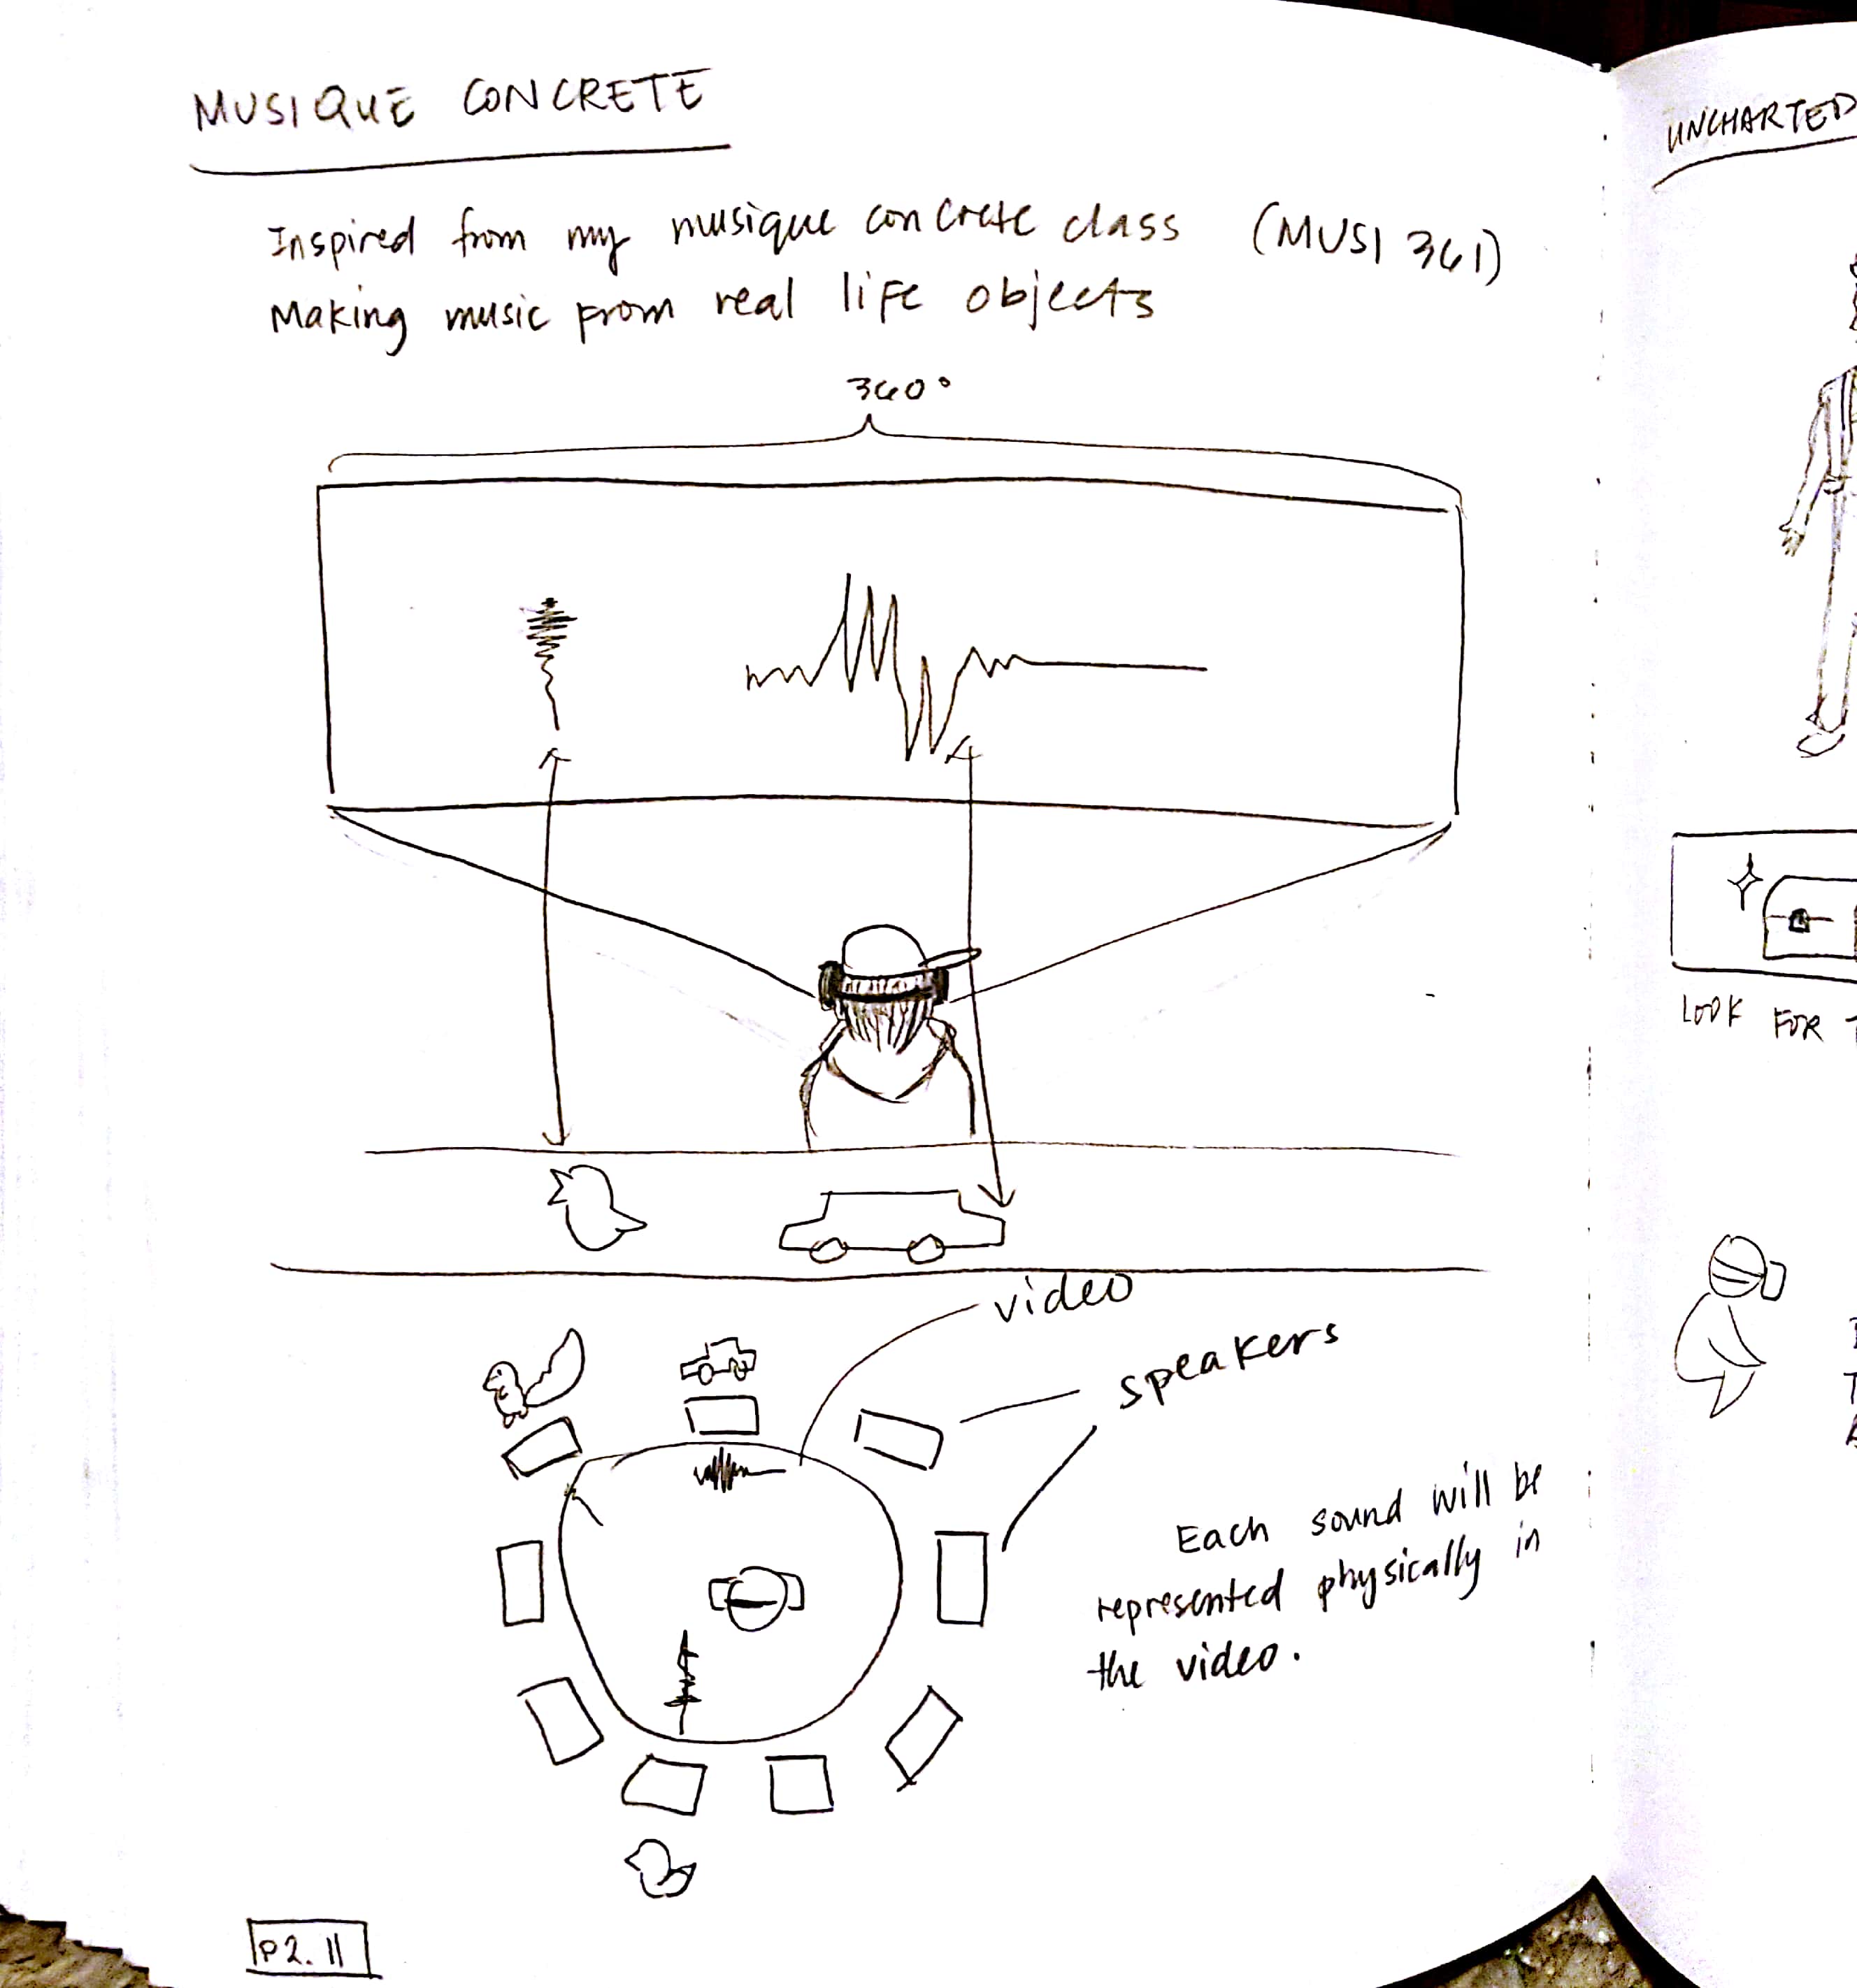 MUSIQUE CONCRETE
Inspired from my musique concrete class (MUSI 361)
Making music from real life objects
360°
video
speakers
Each sound will be
represented physically in
the video.
P2.11
UNCHARTED
LOOK FOR T